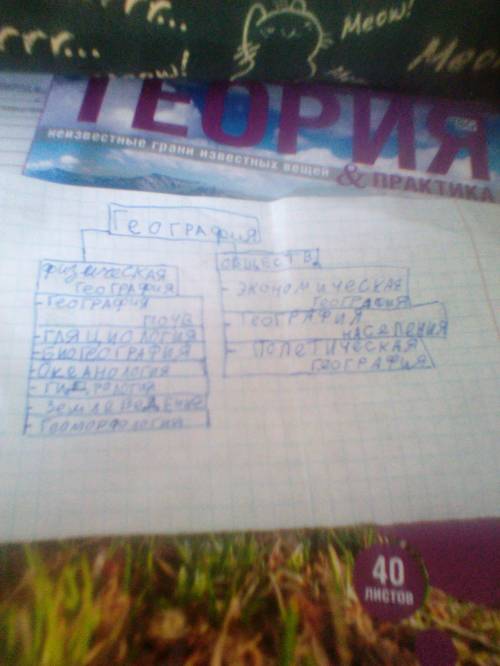 rrr...
Meow!
Meow!
ТЕОРИЯ
неизвестные грани известных вещей
& ПРАКТИКА
География
физическая
география
- география
почв
- гляциология
- биогеография
- океанология
- гидрология
- землеведение
- геоморфология
обществ
- экономическая
география
- география
населения
- полетическая
география
40
ЛИСТОВ